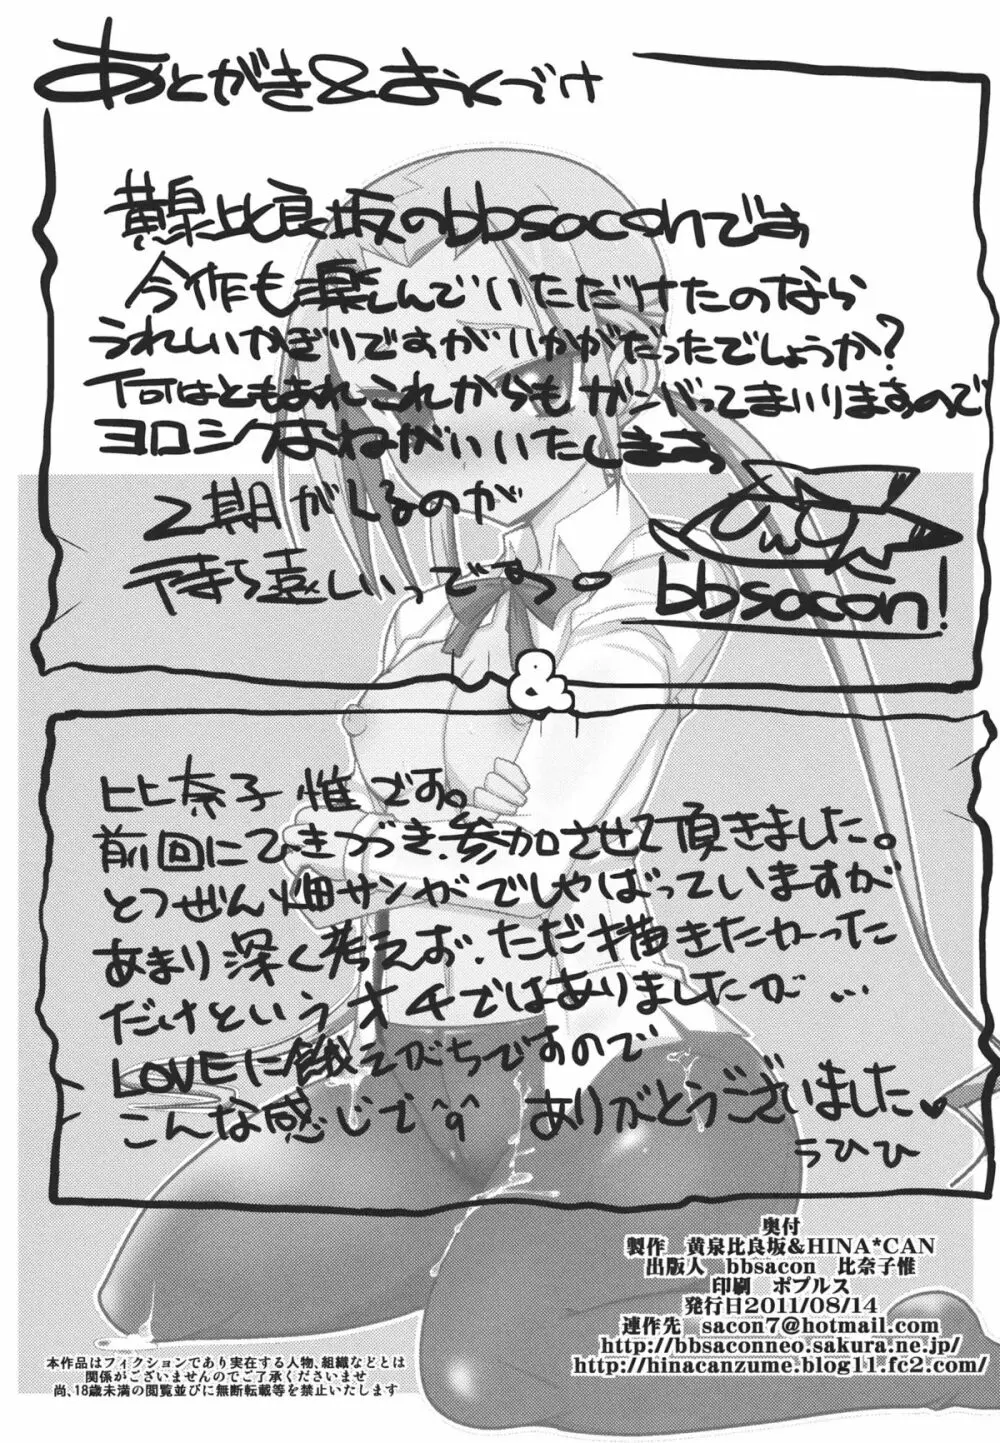 あとがき&おくづけ
黄泉比良坂のbbsaconでっす
今作も楽しんでいただけたのなら
うれしいかぎりですがいかがだったでしょうか?
何はともあれこれからもガンバってまいりますので
ヨロシクおねがいいたします。
2期がくるのが
待ち遠しいっですっ。
bbsacon!
&
比奈子 惟です。
前回にひきつづき、参加させて頂きました。
とつぜん畑サンがでしゃばっていますが
あまり深く考えず、ただ描きたかった
だけというオチではありましたが…
LOVEに餓えがちですので
こんな感じで^q^ ありがとうございました♥
うひひ
奥付
製作 黄泉比良坂&HINA*CAN
出版人 bbsacon 比奈子惟
印刷 ポプルス
発行日2011/08/14
連作先 sacon7@hotmail.com
http://bbsaconneo.sakura.ne.jp/
http://hinacanzume.blog11.fc2.com/
本作品はフィクションであり実在する人物、組織などとは
関係がございませんのでご了承くださいませ
尚、18歳未満の閲覧並びに無断転載等を禁止いたします